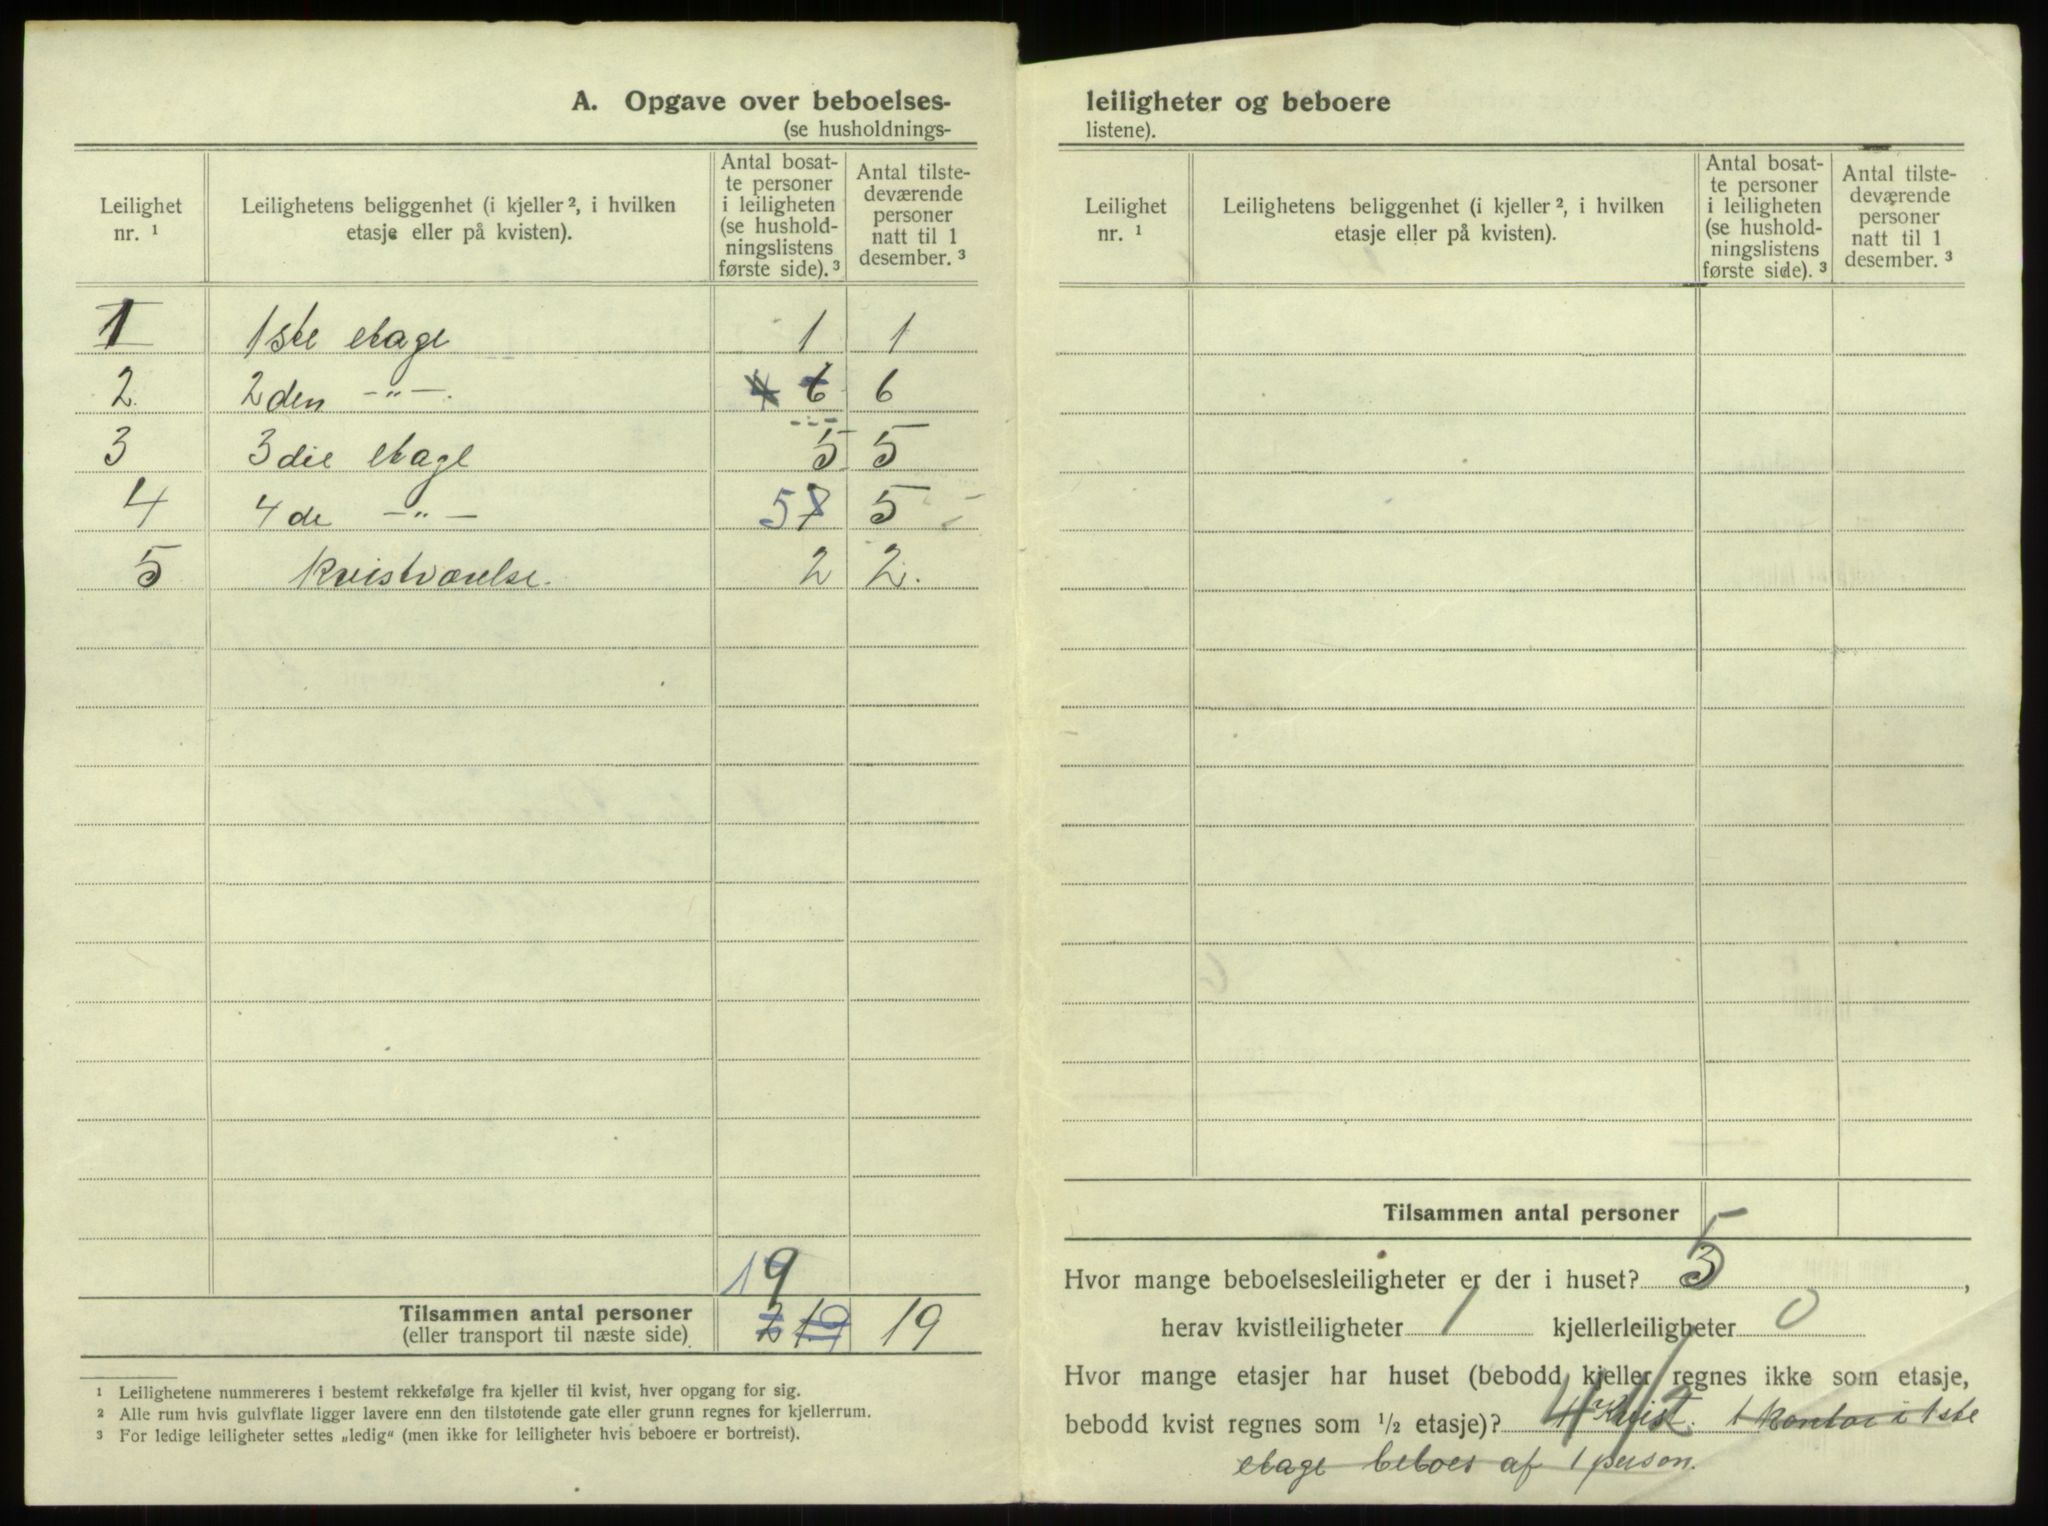 A. Opgave over beboelses-
(se husholdnings-
Leilighet nr. ¹
Leilighetens beliggenhet (i kjeller ², i hvilken etasje eller på kvisten).
Antal bosat-
te personer
i leiligheten
(se hushold-
ningslistens
første side). ³
Antal tilste-
deværende
personer
natt til 1
desember. ³
1 1ste etage 1 1
2 2den -"- 4 6 6
3 3die etage 5 5
4 4de -"- 5 7 5
5 kvistværelse. 2 2.
19
Tilsammen antal personer 2 19 19
(eller transport til næste side)
¹ Leilighetene nummereres i bestemt rekkefølge fra kjeller til kvist, hver opgang for sig.
² Alle rum hvis gulvflate ligger lavere enn den tilstøtende gate eller grunn regnes for kjellerrum.
³ For ledige leiligheter settes „ledig“ (men ikke for leiligheter hvis beboere er bortreist).
leiligheter og beboere
listene).
Leilighet nr. ¹
Leilighetens beliggenhet (i kjeller ², i hvilken etasje eller på kvisten).
Antal bosat-
te personer
i leiligheten
(se hushold-
ningslistens
første side). ³
Antal tilste-
deværende
personer
natt til 1
desember. ³
Tilsammen antal personer
Hvor mange beboelsesleiligheter er der i huset? 5,
herav kvistleiligheter 1 kjellerleiligheter 0
Hvor mange etasjer har huset (bebodd kjeller regnes ikke som etasje,
bebodd kvist regnes som ½ etasje)? 4 1/2 Kvist. 1 kontor i 1ste
etage beboes af 1 person.